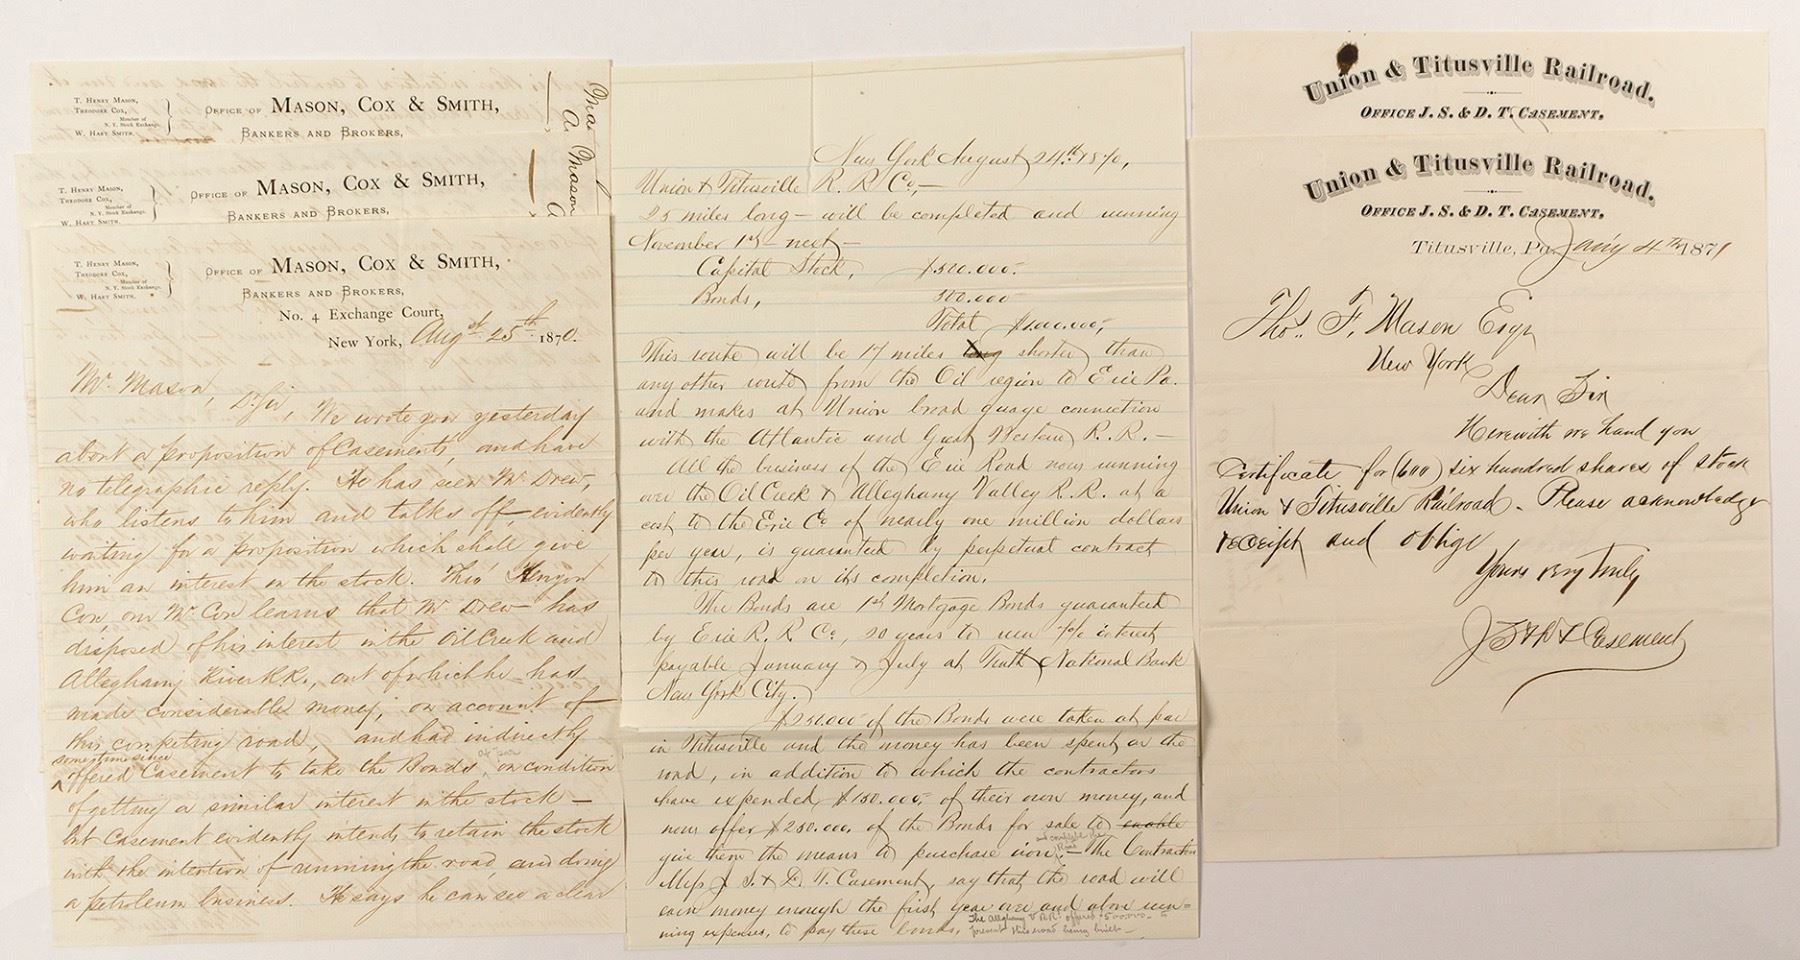 T. Henry Mason,
Theodore Cox,
Member of
N. Y. Stock Exchange.
W. Hart Smith.
Office of Mason, Cox & Smith,
Bankers and Brokers,
A. Mason
T. Henry Mason,
Theodore Cox,
Member of
N. Y. Stock Exchange.
W. Hart Smith.
Office of Mason, Cox & Smith,
Bankers and Brokers,
T. Henry Mason,
Theodore Cox,
Member of
N. Y. Stock Exchange.
W. Hart Smith.
Office of Mason, Cox & Smith,
Bankers and Brokers,
No. 4 Exchange Court,
New York, Augst 25th 1870.
Mr. Mason,
D. Sir, We wrote you yesterday
about a proposition of Casements, and have
no telegraphic reply. He has seen Mr Drew,
who listens to him and talks off, evidently
waiting for a proposition which shall give
him an interest in the stock. Thro'
Cox, our Mr. Cox learns that Mr Drew has
disposed of his interest in the Oil Creek and
Alleghany River RR., out of which he has
made considerable money, on account of
this competing road, and had indirectly
sometime since
offered Casement to take the Bonds at par on condition
of getting a similar interest in the stock —
but Casement evidently intends to retain the stock
with the intention of running the road, and doing
a petroleum business. He says he can see a clear
New York August 24th. 1870,
Union & Titusville R. R. Co,—
25 miles long — will be completed and running
November 1st — next —
Capital Stock, $500.000.
Bonds, 500.000
Total $1,000.000,
This route will be 17 miles long shorter than
any other route from the Oil region to Erie Pa.
and makes at Union broad guage connection
with the Atlantic and Great Western R. R. —
All the business of the Erie Road now running
over the Oil Creek & Alleghany Valley R. R. at a
cost to the Erie Co of nearly one million dollars
per year, is guaranted by perpetual contract
to this road on its completion.
The Bonds are 1st Mortgage Bonds guaranteed
by Erie R. R. Co, 20 years to run 7% interest
payable January & July at Tenth National Bank
New York City.
$250.000 of the Bonds were taken at par
in Titusville and the money has been spent on the
road, in addition to which the contractors
have expended $150.000, of their own money, and
now offer $250.000. of the Bonds for sale to enable
and complete the
Road
give them the means to purchase iron. — The Contractors
Mess J. S. & D. T. Casement, say that the road will
earn money enough the first year over and above run-
ning expenses, to pay these bonds.
The Alleghany V RR. offered $500.000 — to
prevent this road being built —
Union & Titusville Railroad.
Office J. S. & D. T. Casement,
Union & Titusville Railroad.
Office J. S. & D. T. Casement,
Titusville, Pa. Jan'y 4th 1871
Thos. F. Mason Esqr
New York
Dear Sir
Herewith we hand you
Certificate for (600) six hundred shares of stock
Union & Titusville Railroad - Please acknowledge
receipt and oblige
Yours very truly
J S & D T Casement